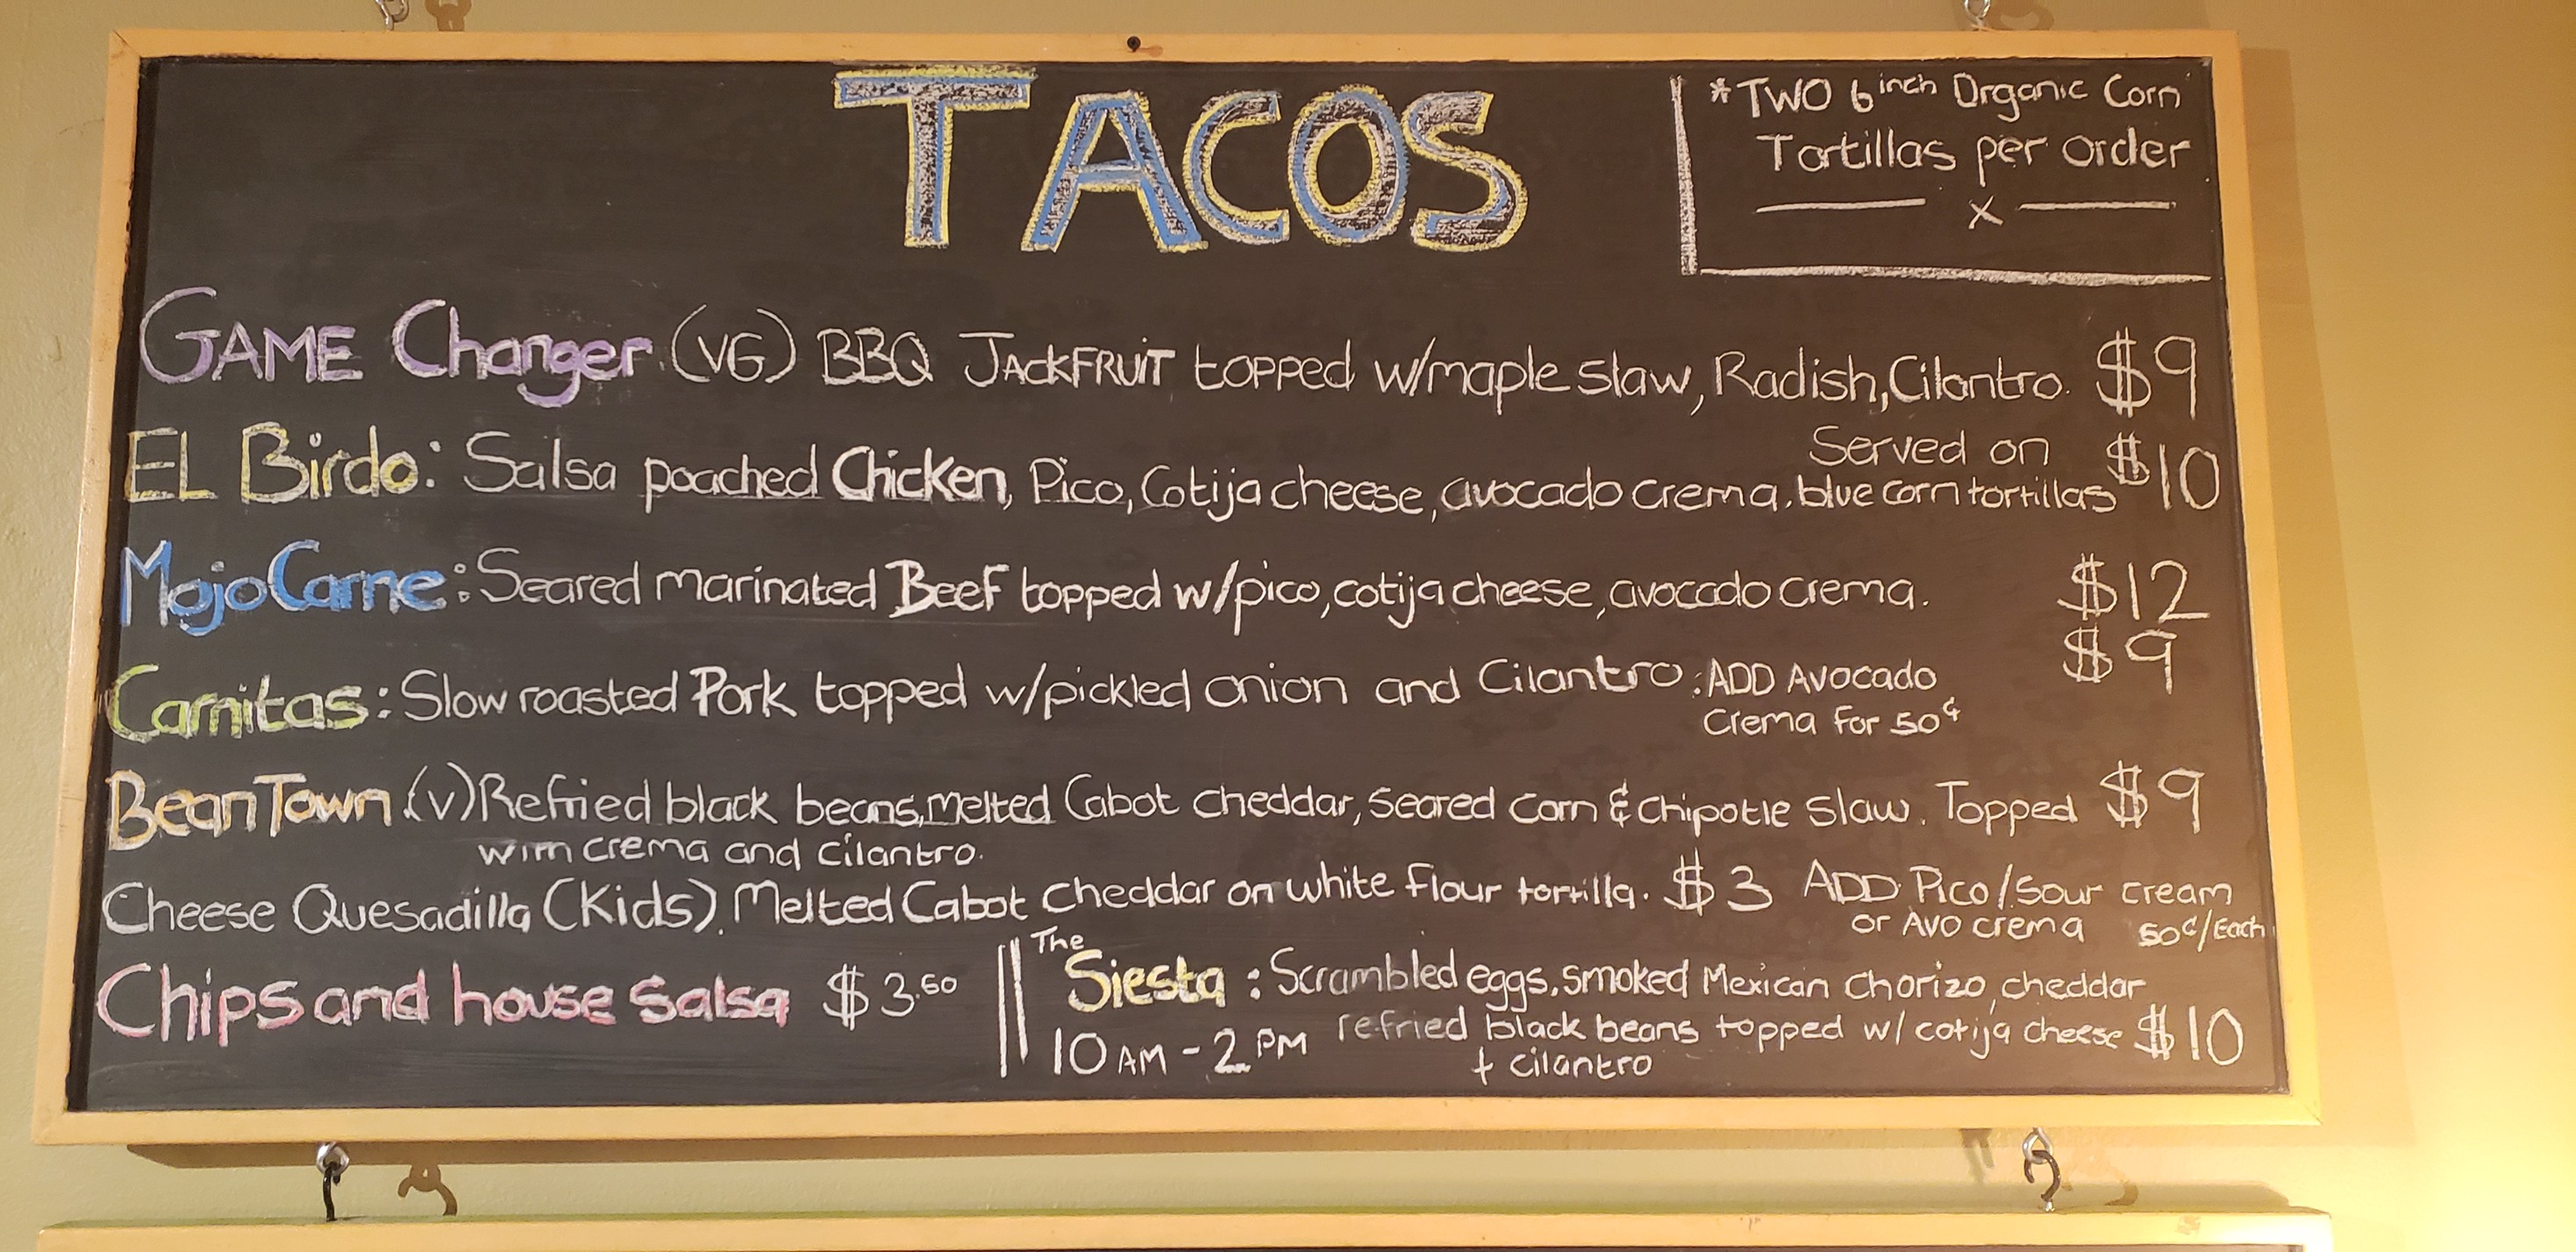 TACOS
*TWO 6 inch Organic Corn
Tortillas per order
x
GAME Changer (VG) BBQ JACKFRUIT topped w/maple slaw, Radish, Cilantro. $9
EL Birdo: Salsa poached Chicken, Pico, Cotija cheese, avocado crema. Served on blue corn tortillas $10
Mojo Carne: Seared marinated Beef topped w/pico, cotija cheese, avocado crema. $12
Carnitas: Slow roasted Pork topped w/pickled onion and Cilantro: ADD Avocado $9
Crema For 50¢
Bean Town (v) Refried black beans, melted Cabot cheddar, seared corn & chipotle slaw. Topped $9
with crema and cilantro.
Cheese Quesadilla (Kids). Melted Cabot cheddar on white flour tortilla. $3 ADD Pico/Sour cream
or Avo crema 50¢/Each
Chips and house Salsa $3.50
The
Siesta: Scrambled eggs, smoked Mexican chorizo, cheddar
10AM-2PM refried black beans topped w/ cotija cheese $10
+ cilantro